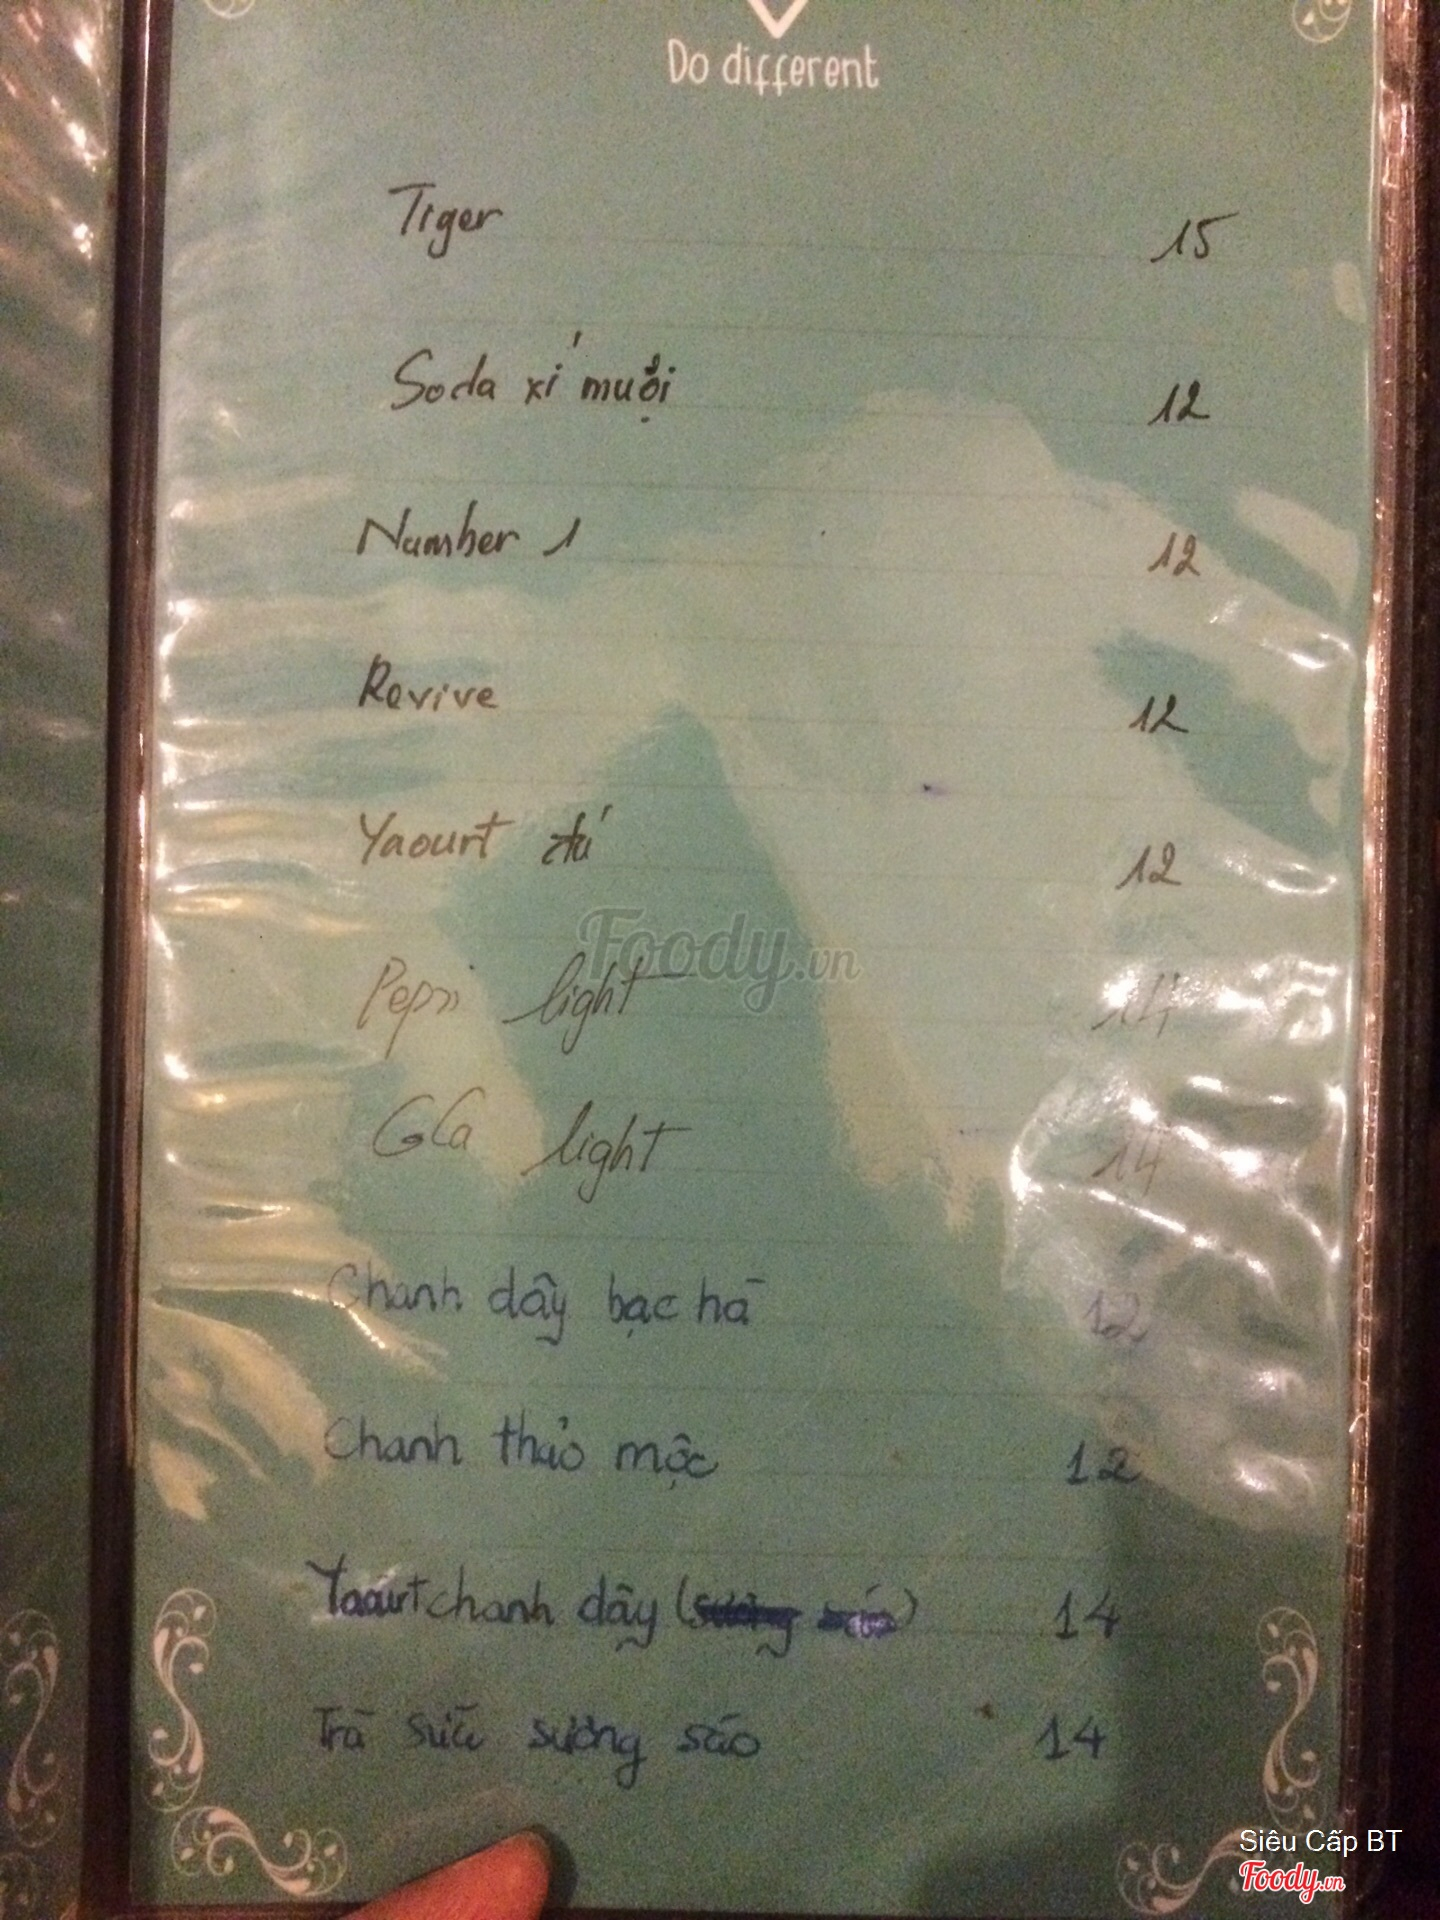 Do different
Tiger 15
Soda xí muội 12
Number 1 12
Revive 12
Yaourt đá 12
Foody.vn
Pepsi light 14
CoCa light 14
Chanh dây bạc hà 12
Chanh thảo mộc 12
Yaourt chanh dây ( ) 14
Trà sữa sương sáo 14
Siêu Cấp BT
Foody.vn